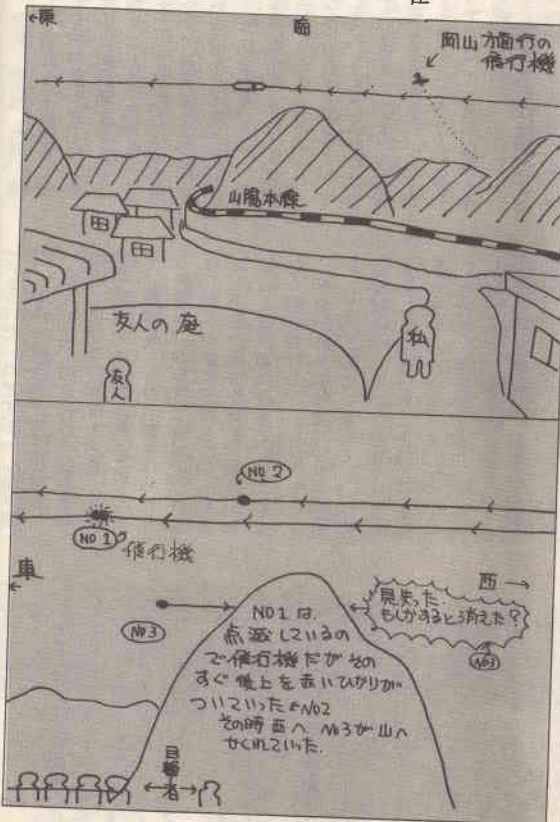 ←東
南
岡山方面行の
飛行機
山陽本線
友人の庭
私
友人
No 2
No 1
飛行機
東
西→
見失った
もしかすると消えた?
No3
No3
No1は、
点滅しているの
で飛行機だがその
すぐ後上を赤いひかりが
ついていった←No2
その時西へNo3が山へ
かくれていった。
目撃者